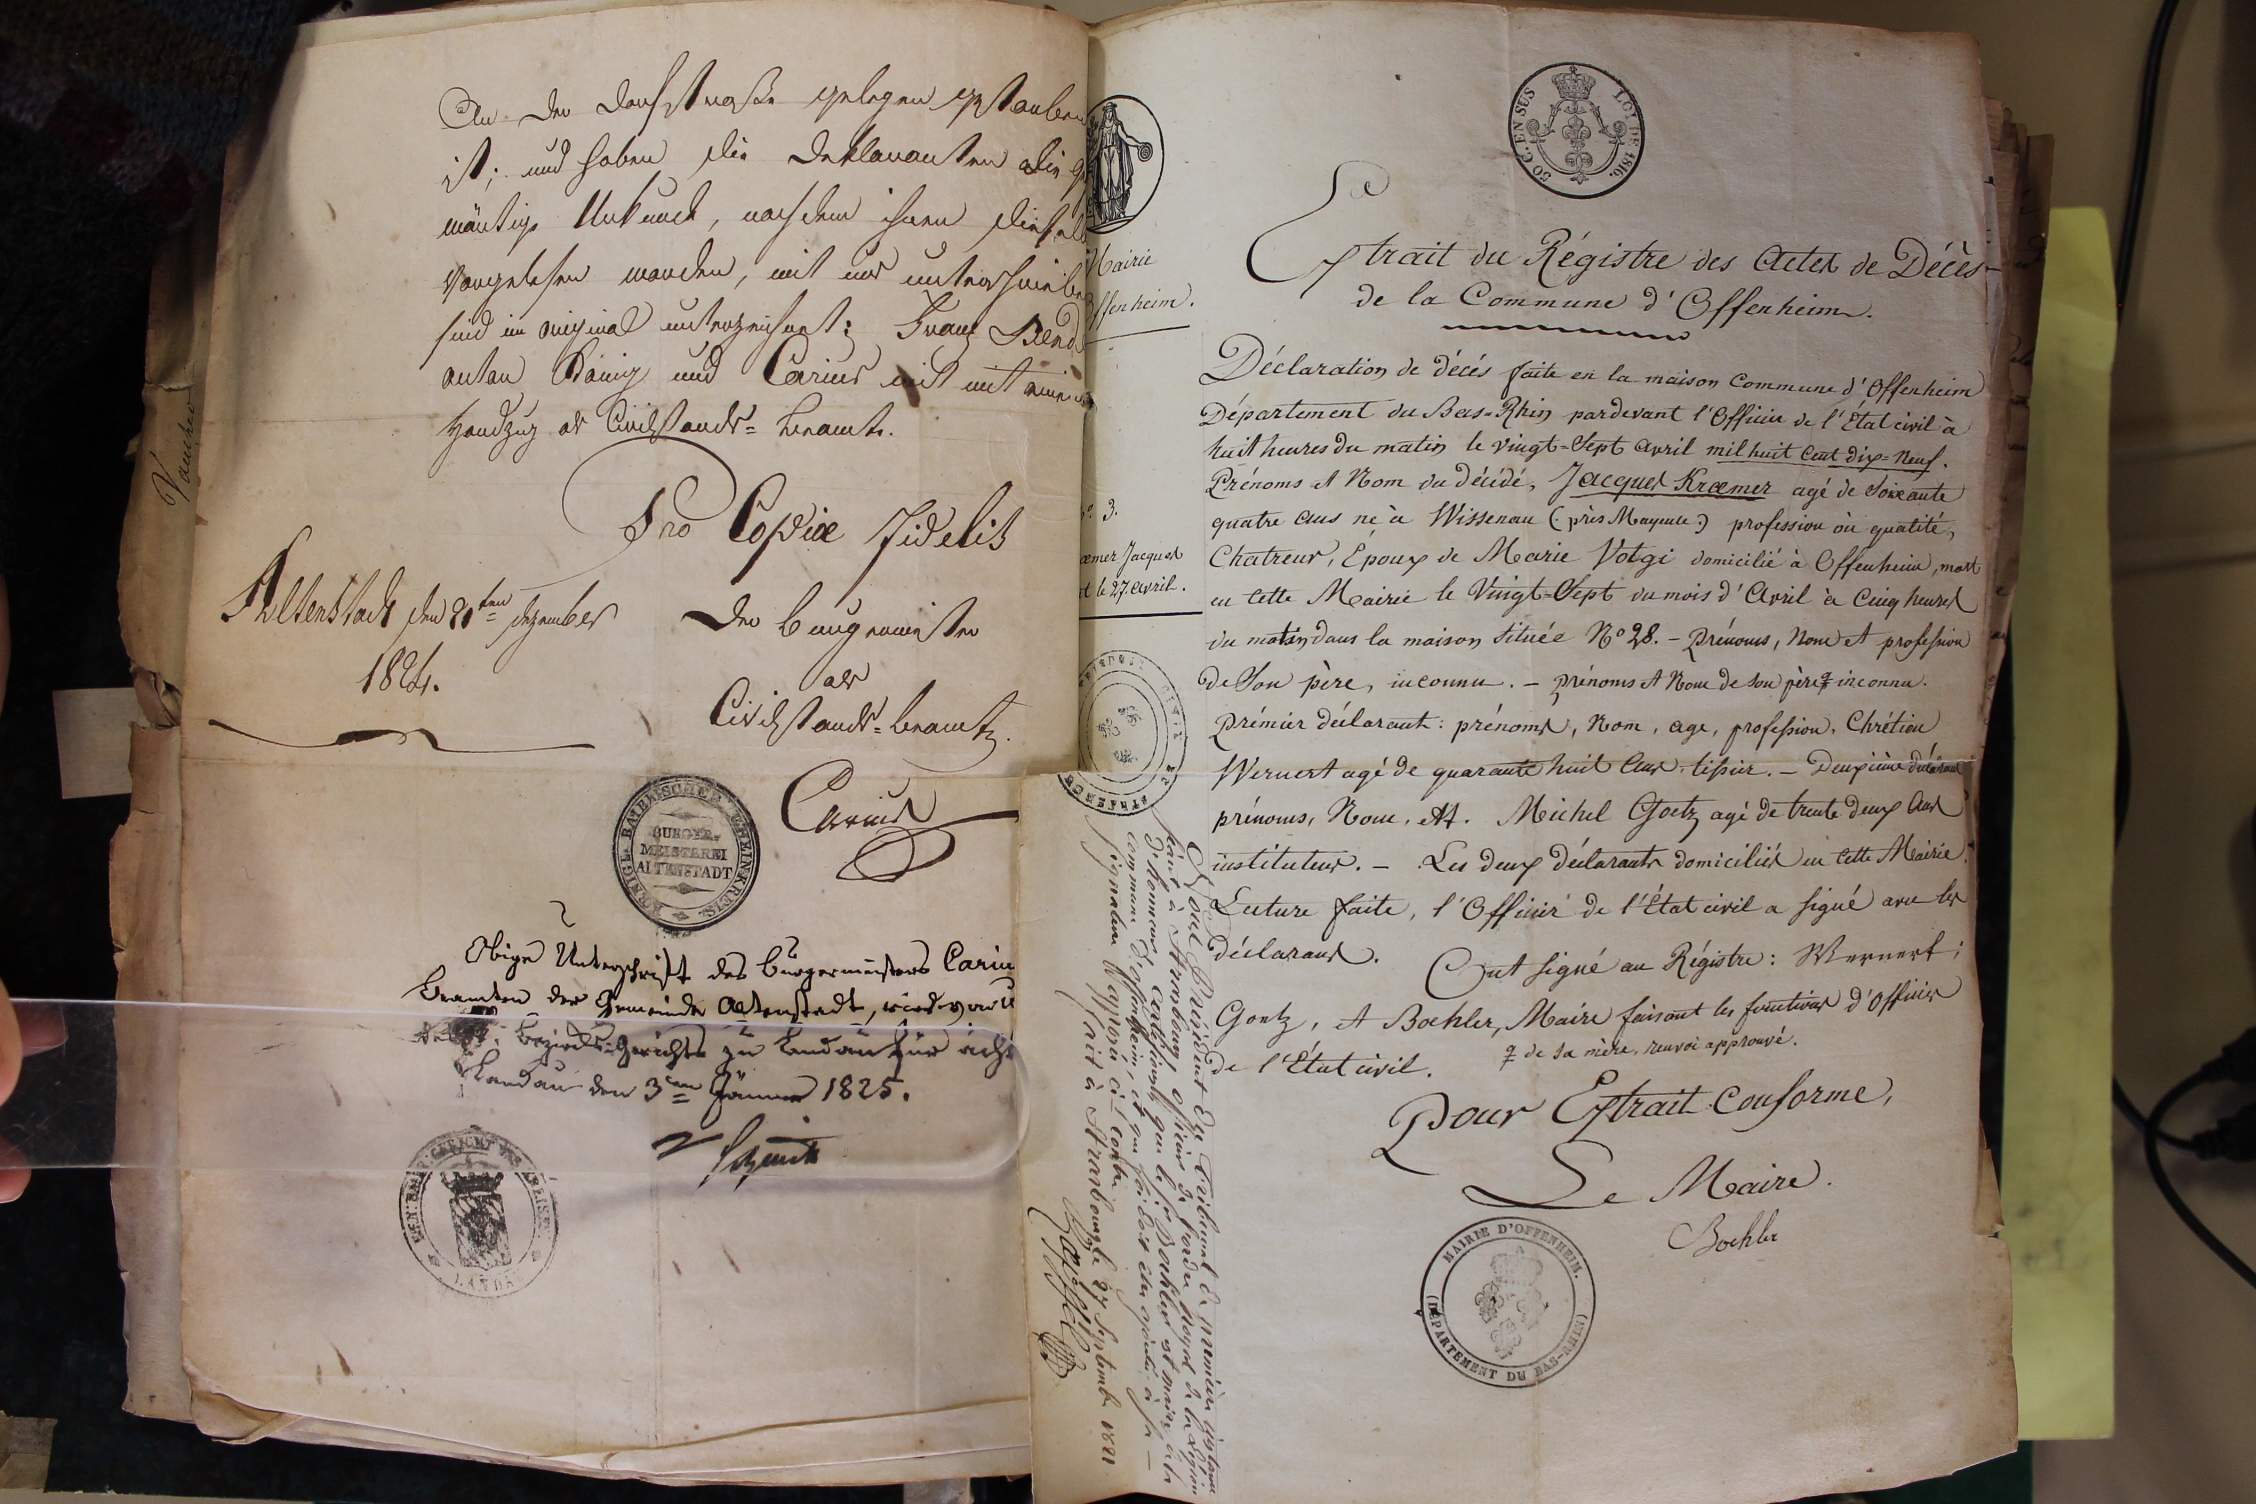 An der Dorfstraße gelegen gestorben
ist; und haben die Deklaranten die ge
wärtige Urkunde, nachdem ihnen dieselb
vorgelesen worden, mit uns unterschrieben
sind im original unterzeichnet: Franz Bend
anton König und Carius mit
Handzug als Civilstands=beamte.
Pro Copiae fidelis
Altenstadt den ten Dezember
1824.
Der Burgermeister
als
Civilstands=beamte.
Carius
KÖNIGL. BAIERISCHER RHEINKREIS.
BURGER-
MEISTEREI
ALTENSTADT
Obige Unterschrift des Bürgermeisters Cariu
Beamten der Gemeinde Altenstadt, wird
Bezirks=Gerichts zu Landau für
Landau den 3ten Jänner 1825.
Vaucher
50 C. EN SUS LOI DE 1816.
Mairie
Offenheim.
3.
œmer Jacques
le 27. avril.
Extrait du Régistre des Actes de Décès
de la Commune d'Offenheim.
Déclaration de décés faite en la maison Commune d'Offenheim
Département du Bas-Rhin pardevant l'Officier de l'État civil à
huit heures du matin le vingt-Sept avril mil huit Cent dix-Neuf.
Prénoms et Nom du décédé, Jacques Krœmer agé de Soixante
quatre ans né à Wissenau (près Mayence) profession ou qualité,
Chatreur, Époux de Marie Votgi domicilié à Offenheim, mort
en Cette Mairie le Vingt-Sept du mois d'Avril à Cinq heures
du matin dans la maison Située No 28. - Prénoms, Nom et profession
de Son père, inconnu. - prénoms et Nom de son père inconnu.
Prémier déclarant: prénoms, Nom, age, profession, Chrétien
Wernert agé de quarante huit Ans, tissier. - Deuxième déclarant
prénoms, Nom, et. Michel Goetz agé de trente deux Ans
instituteur. - Les deux déclarants domiciliés en Cette Mairie.
Lecture faite, l'Officier de l'État civil a signé avec les
déclarans. Ont signé au Régistre: Wernert;
Goetz, et Boehler, Maire faisant les fonctions d'Officier
de l'État civil.
de sa mère, renvoi approuvé.
Pour Extrait conforme,
Le Maire.
Boehler
MAIRIE D'OFFENHEIM.
(DÉPARTEMENT DU BAS-RHIN)
Nous Président du Tribunal de première instance
séant à Strasbourg officier de l'ordre royal de la Légion
d'honneur certifions que le Sr Boehler est maire de la
commune d'Offenheim, et que foi doit être ajoutée à sa
signature apposée ci-contre
fait à Strasbourg le 27 Septembre 1821